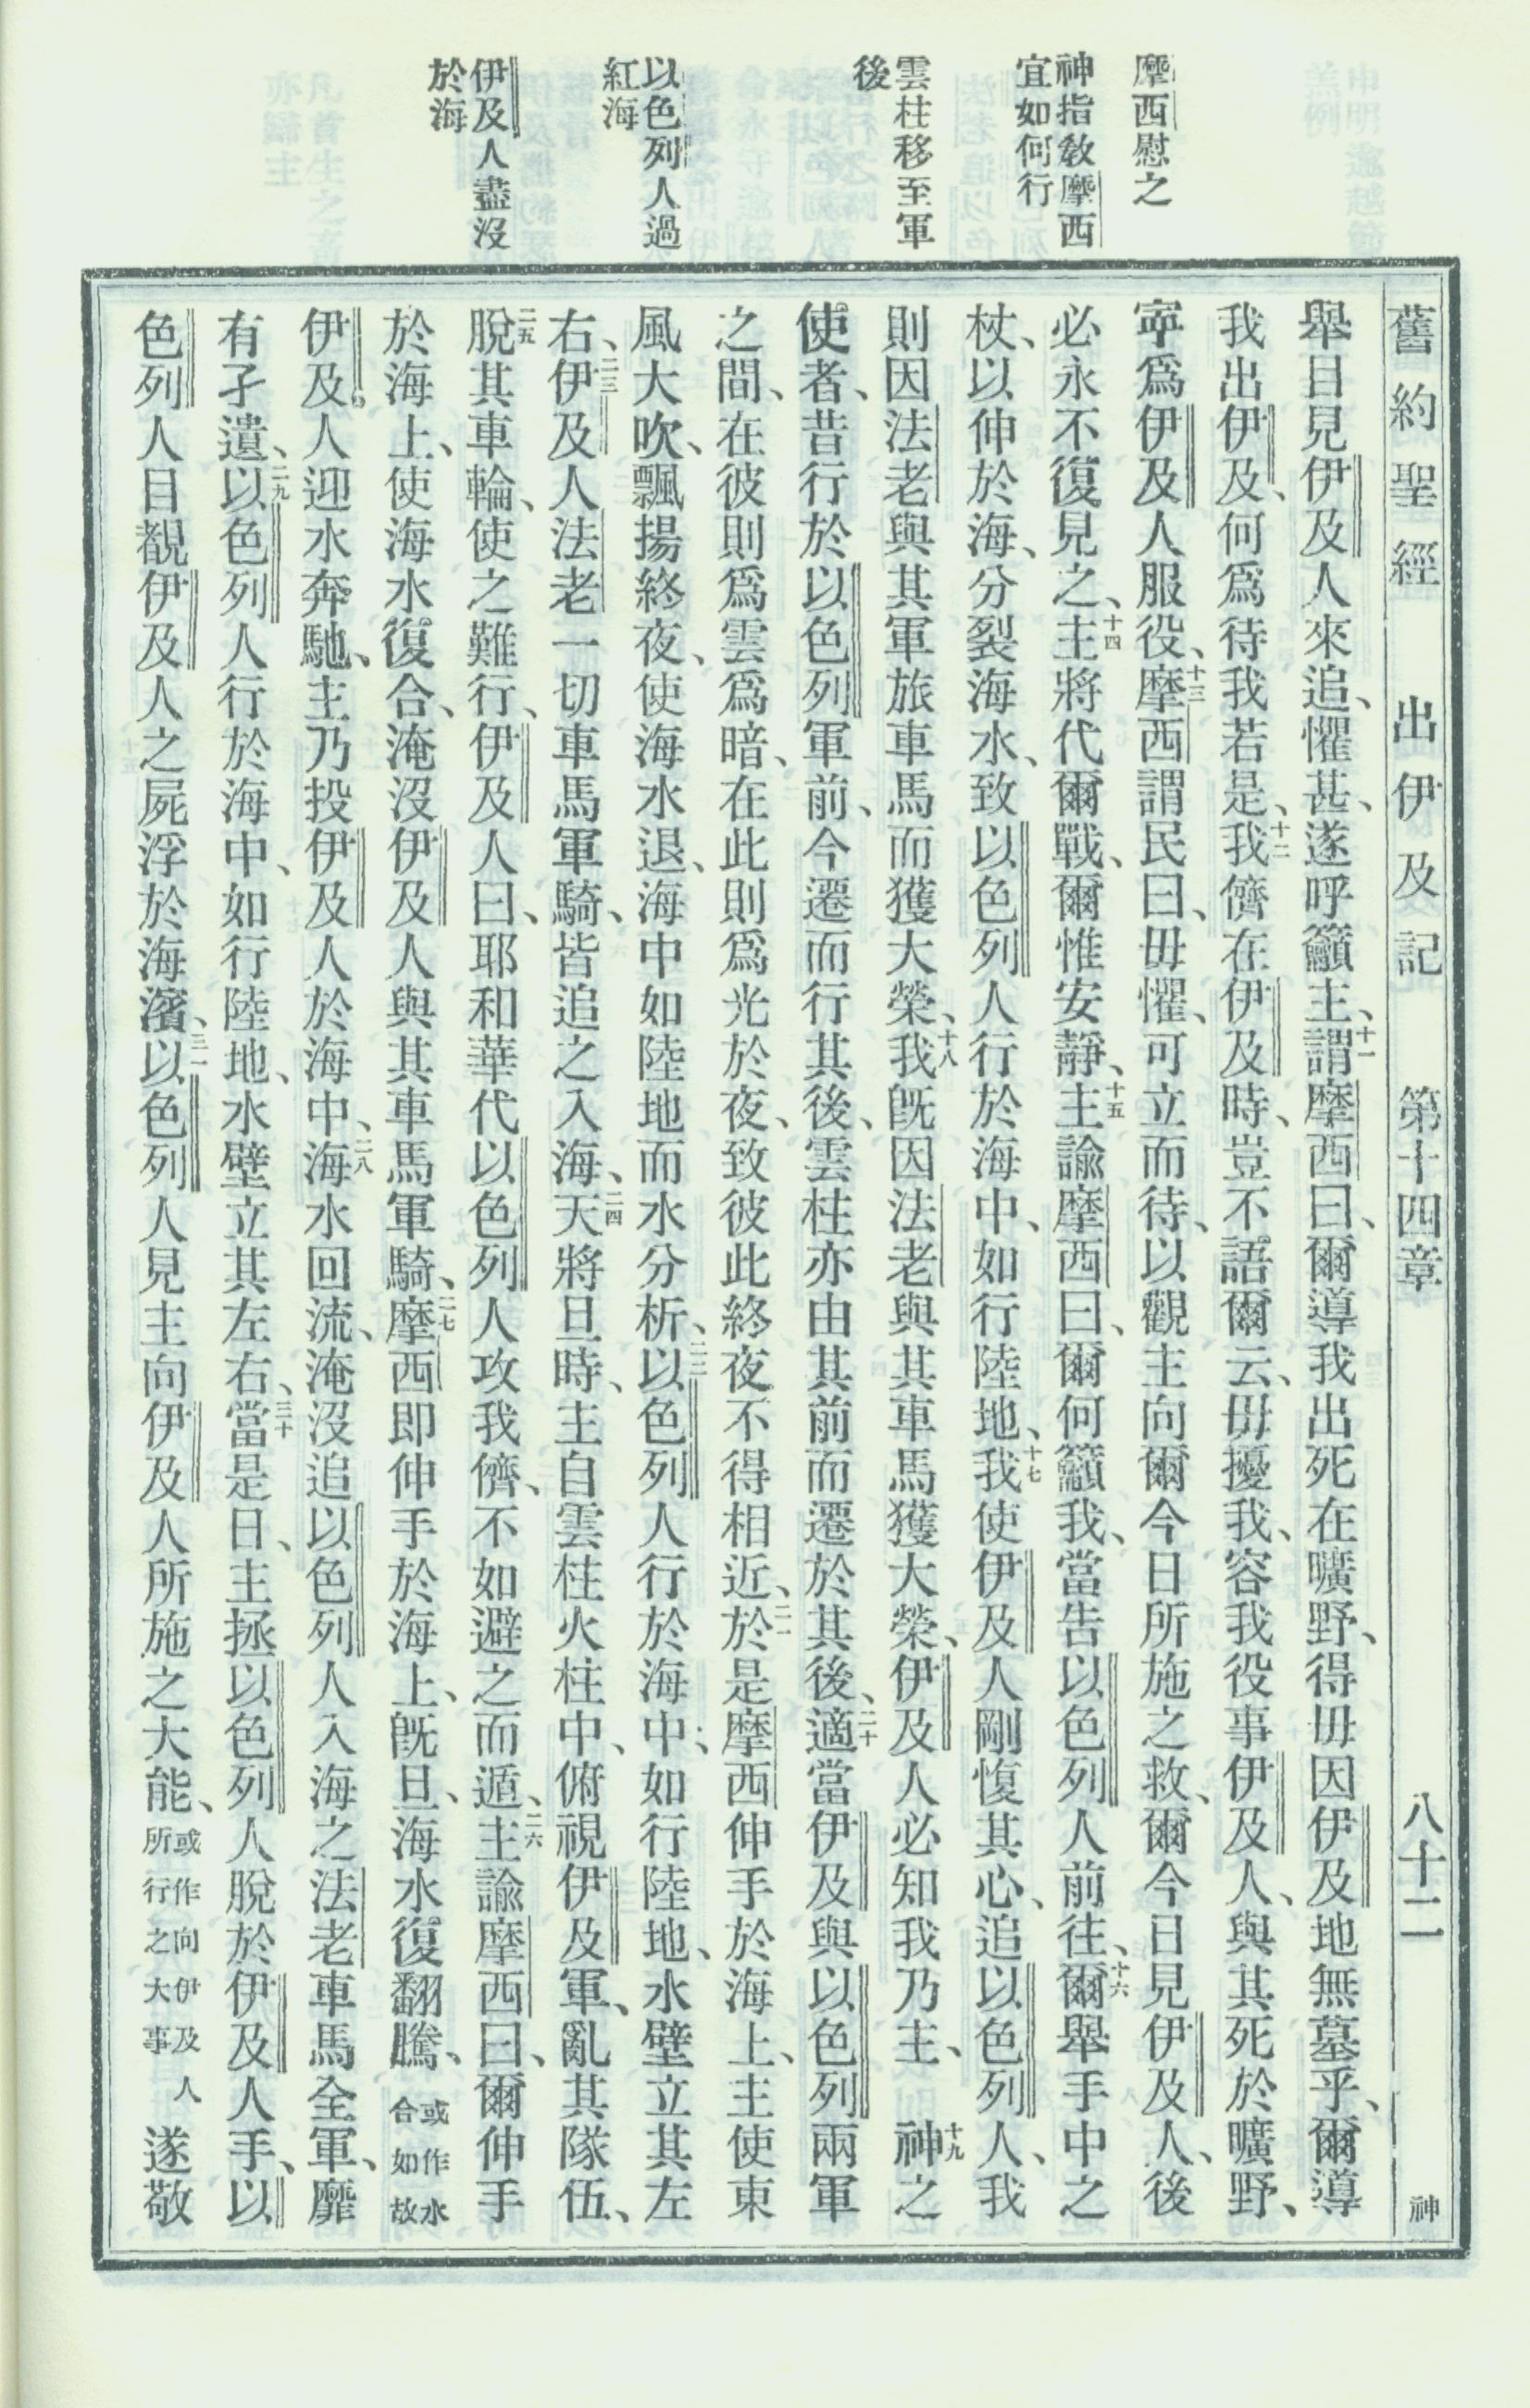 摩西慰之
神指敎摩西
宜如何行
雲柱移至軍
後
以色列人過
紅海
伊及人盡沒
於海
舊約聖經 出伊及記 第十四章 八十二 神
舉目見伊及人來追、懼甚、遂呼籲主、十一謂摩西曰、爾導我出死在曠野、得毋因伊及地無墓乎、爾導
我出伊及、何爲待我若是、十二我儕在伊及時、豈不語爾云、毋擾我、容我役事伊及人、與其死於曠野、
寧爲伊及人服役、十三摩西謂民曰、毋懼、可立而待、以觀主向爾今日所施之救、爾今日見伊及人、後
必永不復見之、十四主將代爾戰、爾惟安靜、十五主諭摩西曰、爾何籲我、當告以色列人前往、十六爾舉手中之
杖、以伸於海、分裂海水、致以色列人行於海中、如行陸地、十七我使伊及人剛愎其心、追以色列人、我
則因法老與其軍旅車馬而獲大榮、十八我旣因法老與其車馬獲大榮、伊及人必知我乃主、十九神之
使者、昔行於以色列軍前、今遷而行其後、雲柱亦由其前而遷於其後、二十適當伊及與以色列兩軍
之間、在彼則爲雲爲暗、在此則爲光於夜、致彼此終夜不得相近、二一於是摩西伸手於海上、主使東
風大吹、飄揚終夜、使海水退、海中如陸地而水分析、二二以色列人行於海中、如行陸地、水壁立其左
右、二三伊及人法老一切車馬軍騎、皆追之入海、二四天將旦時、主自雲柱火柱中、俯視伊及軍、亂其隊伍、
二五脫其車輪、使之難行、伊及人曰、耶和華代以色列人攻我儕、不如避之而遁、二六主諭摩西曰、爾伸手
於海上、使海水復合、淹沒伊及人與其車馬軍騎、二七摩西即伸手於海上、旣旦、海水復翻騰、或作水合如故
伊及人迎水奔馳、主乃投伊及人於海中、二八海水回流、淹沒追以色列人入海之法老車馬全軍、靡
有孑遺、二九以色列人行於海中、如行陸地、水壁立其左右、三十當是日、主拯以色列人脫於伊及人手、以
色列人目覩伊及人之屍浮於海濱、三一以色列人見主向伊及人所施之大能、或作向伊及人所行之大事遂敬